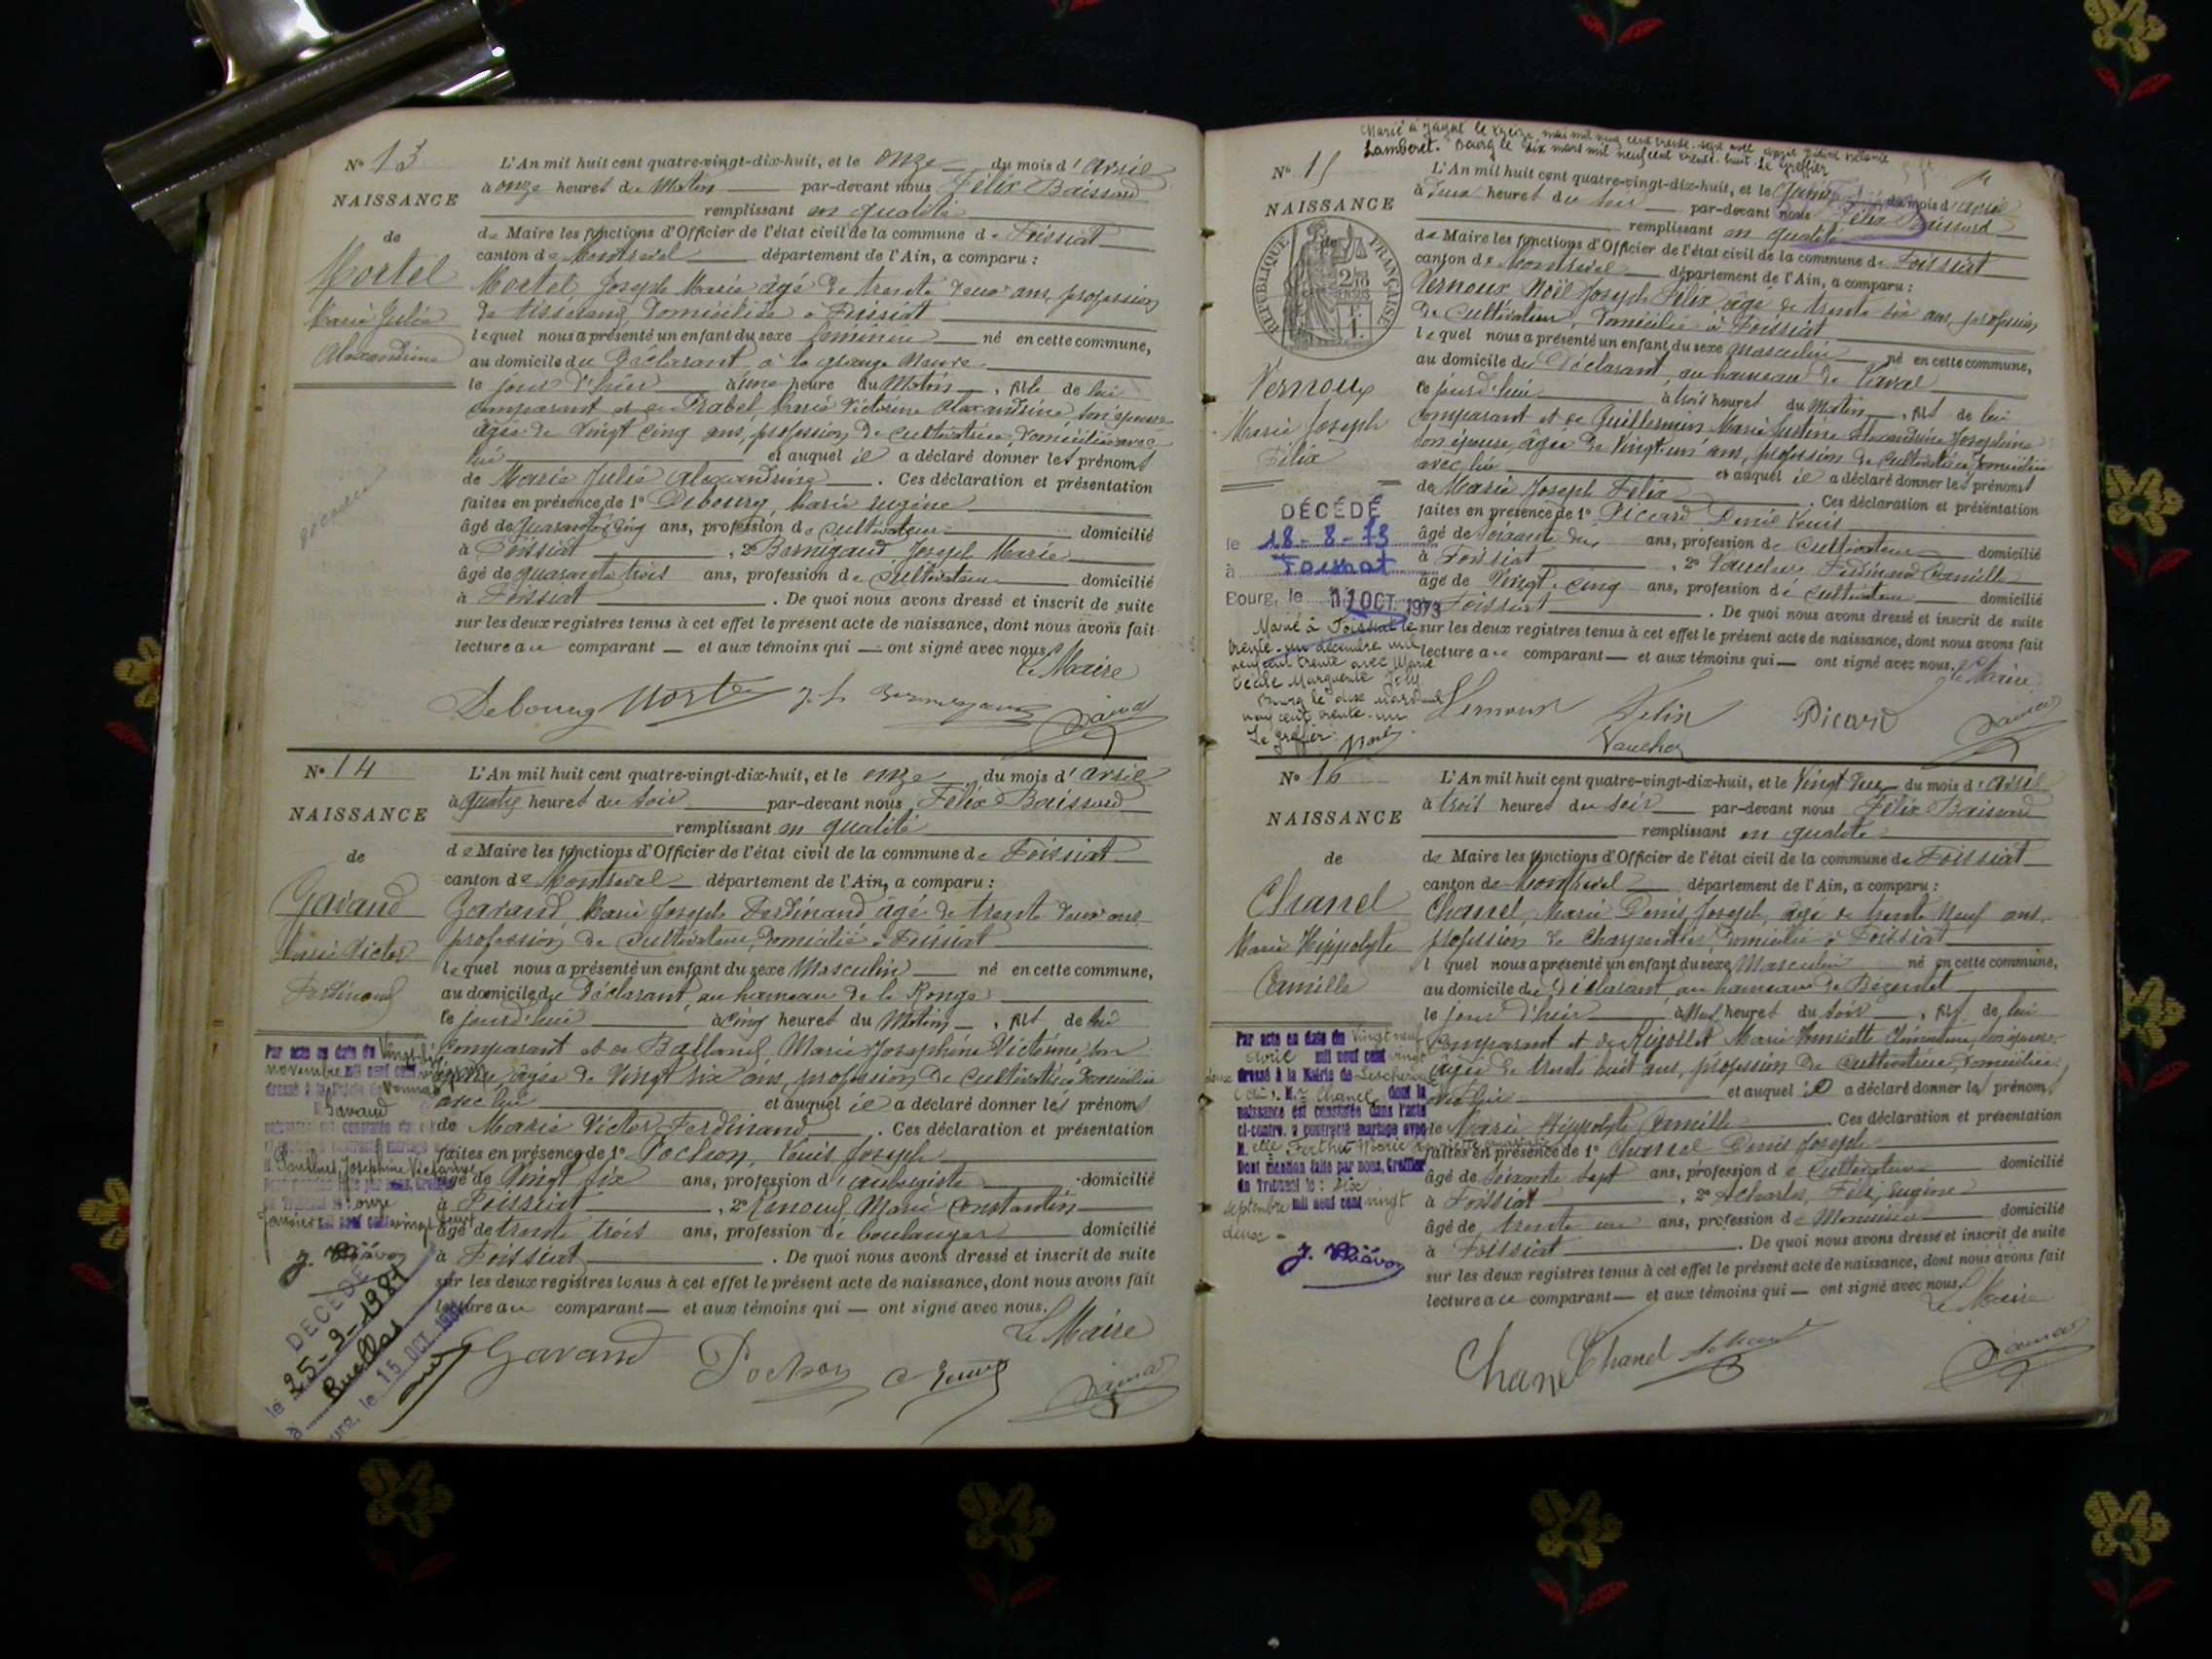 N° 13
NAISSANCE
de
Mortel
Marie Julie
Alexandrine
L'An mil huit cent quatre-vingt-dix-huit, et le onze du mois d'avril
à onze heures du Matin par-devant nous Félix Baissard
remplissant en qualité
de Maire les fonctions d'Officier de l'état civil de la commune de Foissiat
canton de Montrevel département de l'Ain, a comparu :
Mortel Joseph Marie âgé de trente deux ans, profession
de tisserand, domicilié à Foissiat
lequel nous a présenté un enfant du sexe féminin né en cette commune,
au domicile du Déclarant à la grange Neuve
le jour d'hier à une heure du Matin, fille de lui
comparant et de Prabel Marie Victorine Alexandrine son épouse
âgée de Vingt cinq ans, profession de cultivatrice, domiciliée avec
lui et auquel il a déclaré donner les prénoms
de Marie Julie Alexandrine. Ces déclaration et présentation
faites en présence de 1° Debourg, Marie Eugène
âgé de quarante cinq ans, profession de cultivateur domicilié
à Foissiat, 2° Bernigaud Joseph Marie
âgé de quarante trois ans, profession de cultivateur domicilié
à Foissiat. De quoi nous avons dressé et inscrit de suite
sur les deux registres tenus à cet effet le présent acte de naissance, dont nous avons fait
lecture au comparant — et aux témoins qui — ont signé avec nous.
Le Maire
Debourg Mortel
N° 14
NAISSANCE
de
Gavand
Marie Victor
Ferdinand
L'An mil huit cent quatre-vingt-dix-huit, et le onze du mois d'avril
à quatre heures du soir par-devant nous Félix Baissard
remplissant en qualité
de Maire les fonctions d'Officier de l'état civil de la commune de Foissiat
canton de Montrevel département de l'Ain, a comparu :
Gavand Marie Joseph Ferdinand âgé de trente deux ans,
profession de cultivateur, domicilié à Foissiat
lequel nous a présenté un enfant du sexe Masculin né en cette commune,
au domicile du Déclarant, au hameau de la Ronge
le jour d'hui à cinq heures du Matin, fils de lui
comparant et de Balland, Marie Joséphine Victorine son
épouse âgée de Vingt six ans, profession de cultivatrice domiciliée
avec lui et auquel il a déclaré donner les prénoms
de Marie Victor Ferdinand. Ces déclaration et présentation
faites en présence de 1° Pochon, Louis Joseph
âgé de Vingt six ans, profession d'aubergiste domicilié
à Foissiat, 2° Marie Constantin
âgé de trente trois ans, profession de boulanger domicilié
à Foissiat. De quoi nous avons dressé et inscrit de suite
sur les deux registres tenus à cet effet le présent acte de naissance, dont nous avons fait
lecture au comparant — et aux témoins qui — ont signé avec nous.
Le Maire
Gavand Pochon
Par acte en date du Vingt-six
novembre mil neuf cent vingt
dressé à la Mairie de Vonnas
M. Gavand
Joséphine
DÉCÉDÉ
le 25-9-1981
à Buellas
15 OCT.
Marié à Jayat le treize mai mil neuf cent trente-sept avec
Lamberet. Bourg le dix mars mil neuf cent trente-huit. Le greffier
N° 15
NAISSANCE
de
RÉPUBLIQUE FRANÇAISE
Vernoux
Marie Joseph
Félix
L'An mil huit cent quatre-vingt-dix-huit, et le quinze du mois d'avril
à deux heures du soir par-devant nous Félix Baissard
remplissant en qualité
de Maire les fonctions d'Officier de l'état civil de la commune de Foissiat
canton de Montrevel département de l'Ain, a comparu :
Vernoux Noël Joseph Félix, âgé de trente six ans, profession
de cultivateur, domicilié à Foissiat
lequel nous a présenté un enfant du sexe Masculin né en cette commune,
au domicile du Déclarant, au hameau de
ce jourd'hui à trois heures du Matin, fils de lui
comparant et de Guillermin Marie Justine Alexandrine Joséphine
son épouse, âgée de Vingt-un ans, profession de cultivatrice, domiciliée
avec lui et auquel il a déclaré donner les prénoms
de Marie Joseph Félix. Ces déclaration et présentation
faites en présence de 1° Piccard Denis Louis
âgé de soixante ans, profession de cultivateur domicilié
à Foissiat, 2° Vaucher Ferdinand Camille
âgé de Vingt-cinq ans, profession de cultivateur domicilié
à Foissiat. De quoi nous avons dressé et inscrit de suite
sur les deux registres tenus à cet effet le présent acte de naissance, dont nous avons fait
lecture au comparant — et aux témoins qui — ont signé avec nous. Le Maire
Vernoux Félix Picard
Vaucher
DÉCÉDÉ
le 18-8-73
à Foissiat
Bourg, le 11 OCT. 1973
Marié à Foissiat le
trente-un décembre mil
neuf cent trente avec Marie
Cécile Marguerite Joly
Bourg le dix mars mil
neuf cent trente-un
Le greffier
N° 16
NAISSANCE
de
Chanel
Marie Hippolyte
Camille
L'An mil huit cent quatre-vingt-dix-huit, et le Vingt deux du mois d'avril
à trois heures du soir par-devant nous Félix Baissard
remplissant en qualité
de Maire les fonctions d'Officier de l'état civil de la commune de Foissiat
canton de Montrevel département de l'Ain, a comparu :
Chanel, Marie Denis Joseph, âgé de trente neuf ans,
profession de charpentier, domicilié à Foissiat
lequel nous a présenté un enfant du sexe Masculin né en cette commune,
au domicile du Déclarant, au hameau de
le jour d'hier à neuf heures du soir, fils de lui
comparant et de Rigollet Marie Henriette Clémentine, son épouse
âgée de trente huit ans, profession de cultivatrice, domiciliée
avec lui et auquel il a déclaré donner les prénoms
de Marie Hippolyte Camille. Ces déclaration et présentation
faites en présence de 1° Chanel Denis Joseph
âgé de soixante sept ans, profession de cultivateur domicilié
à Foissiat, 2° Félix Eugène
âgé de trente un ans, profession de Menuisier domicilié
à Foissiat. De quoi nous avons dressé et inscrit de suite
sur les deux registres tenus à cet effet le présent acte de naissance, dont nous avons fait
lecture au comparant — et aux témoins qui — ont signé avec nous.
Le Maire
Chanel Chanel
Par acte en date du Vingt neuf
avril mil neuf cent vingt
deux dressé à la Mairie de Lescheroux
(Ain), M. Chanel dont la
naissance est constatée dans l'acte
ci-contre, a contracté mariage avec
Melle Ferthet Marie
Dont mention faite par nous, Greffier
du Tribunal le : six
septembre mil neuf cent vingt
deux